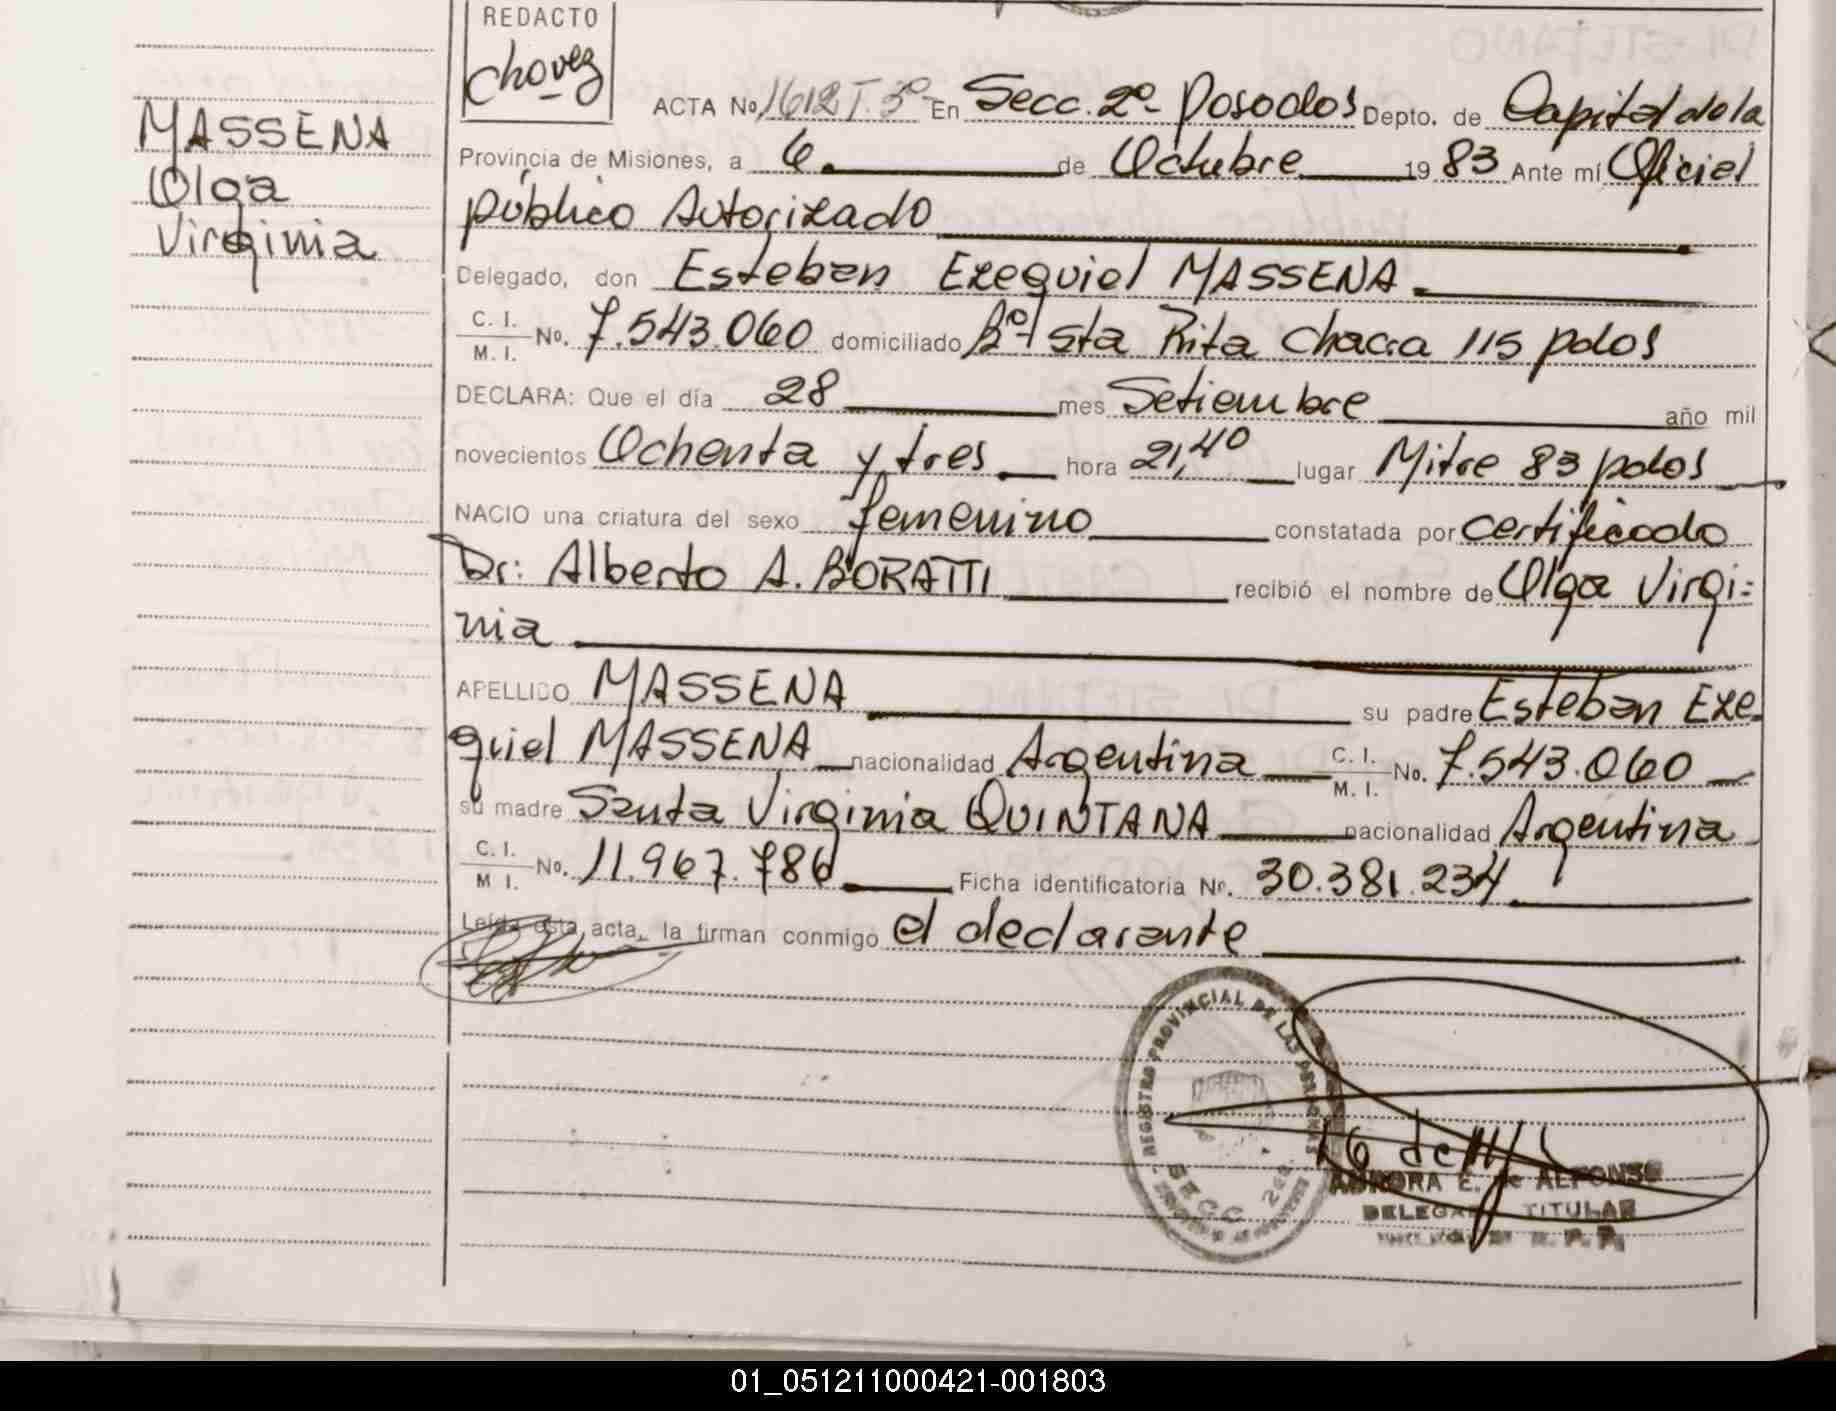 REDACTO
Chavez
MASSENA
Olga
Virginia
ACTA No. 1612 T. 3º En Secc. 2º- Posadas Depto. de Capital de la
Provincia de Misiones, a 6 de Octubre 1983 Ante mí Oficial
público Autorizado
Delegado, don Esteban Ezequiel MASSENA
C. I. M. I. No. 7.543.060 domiciliado Bº Sta Rita Chacra 115 pdas
DECLARA: Que el día 28 mes Setiembre año mil
novecientos Ochenta y tres hora 21,40 lugar Mitre 83 pdas
NACIO una criatura del sexo femenino constatada por certificado
Dr: Alberto A. BORATTI recibió el nombre de Olga Virgi=
nia
APELLIDO MASSENA su padre Esteban Eze
quiel MASSENA nacionalidad Argentina C. I. M. I. No. 7.543.060
su madre Santa Virginia QUINTANA nacionalidad Argentina
C. I. M I. No. 11.967.786 Ficha identificatoria Nr. 30.381.234
Leída esta acta, la firman conmigo el declarante
REGISTRO PROVINCIAL DE LAS PERSONAS
SECC 2da.
AURORA E. de ALFONSO
DELEGADA TITULAR
R. P. P.
01_051211000421-001803